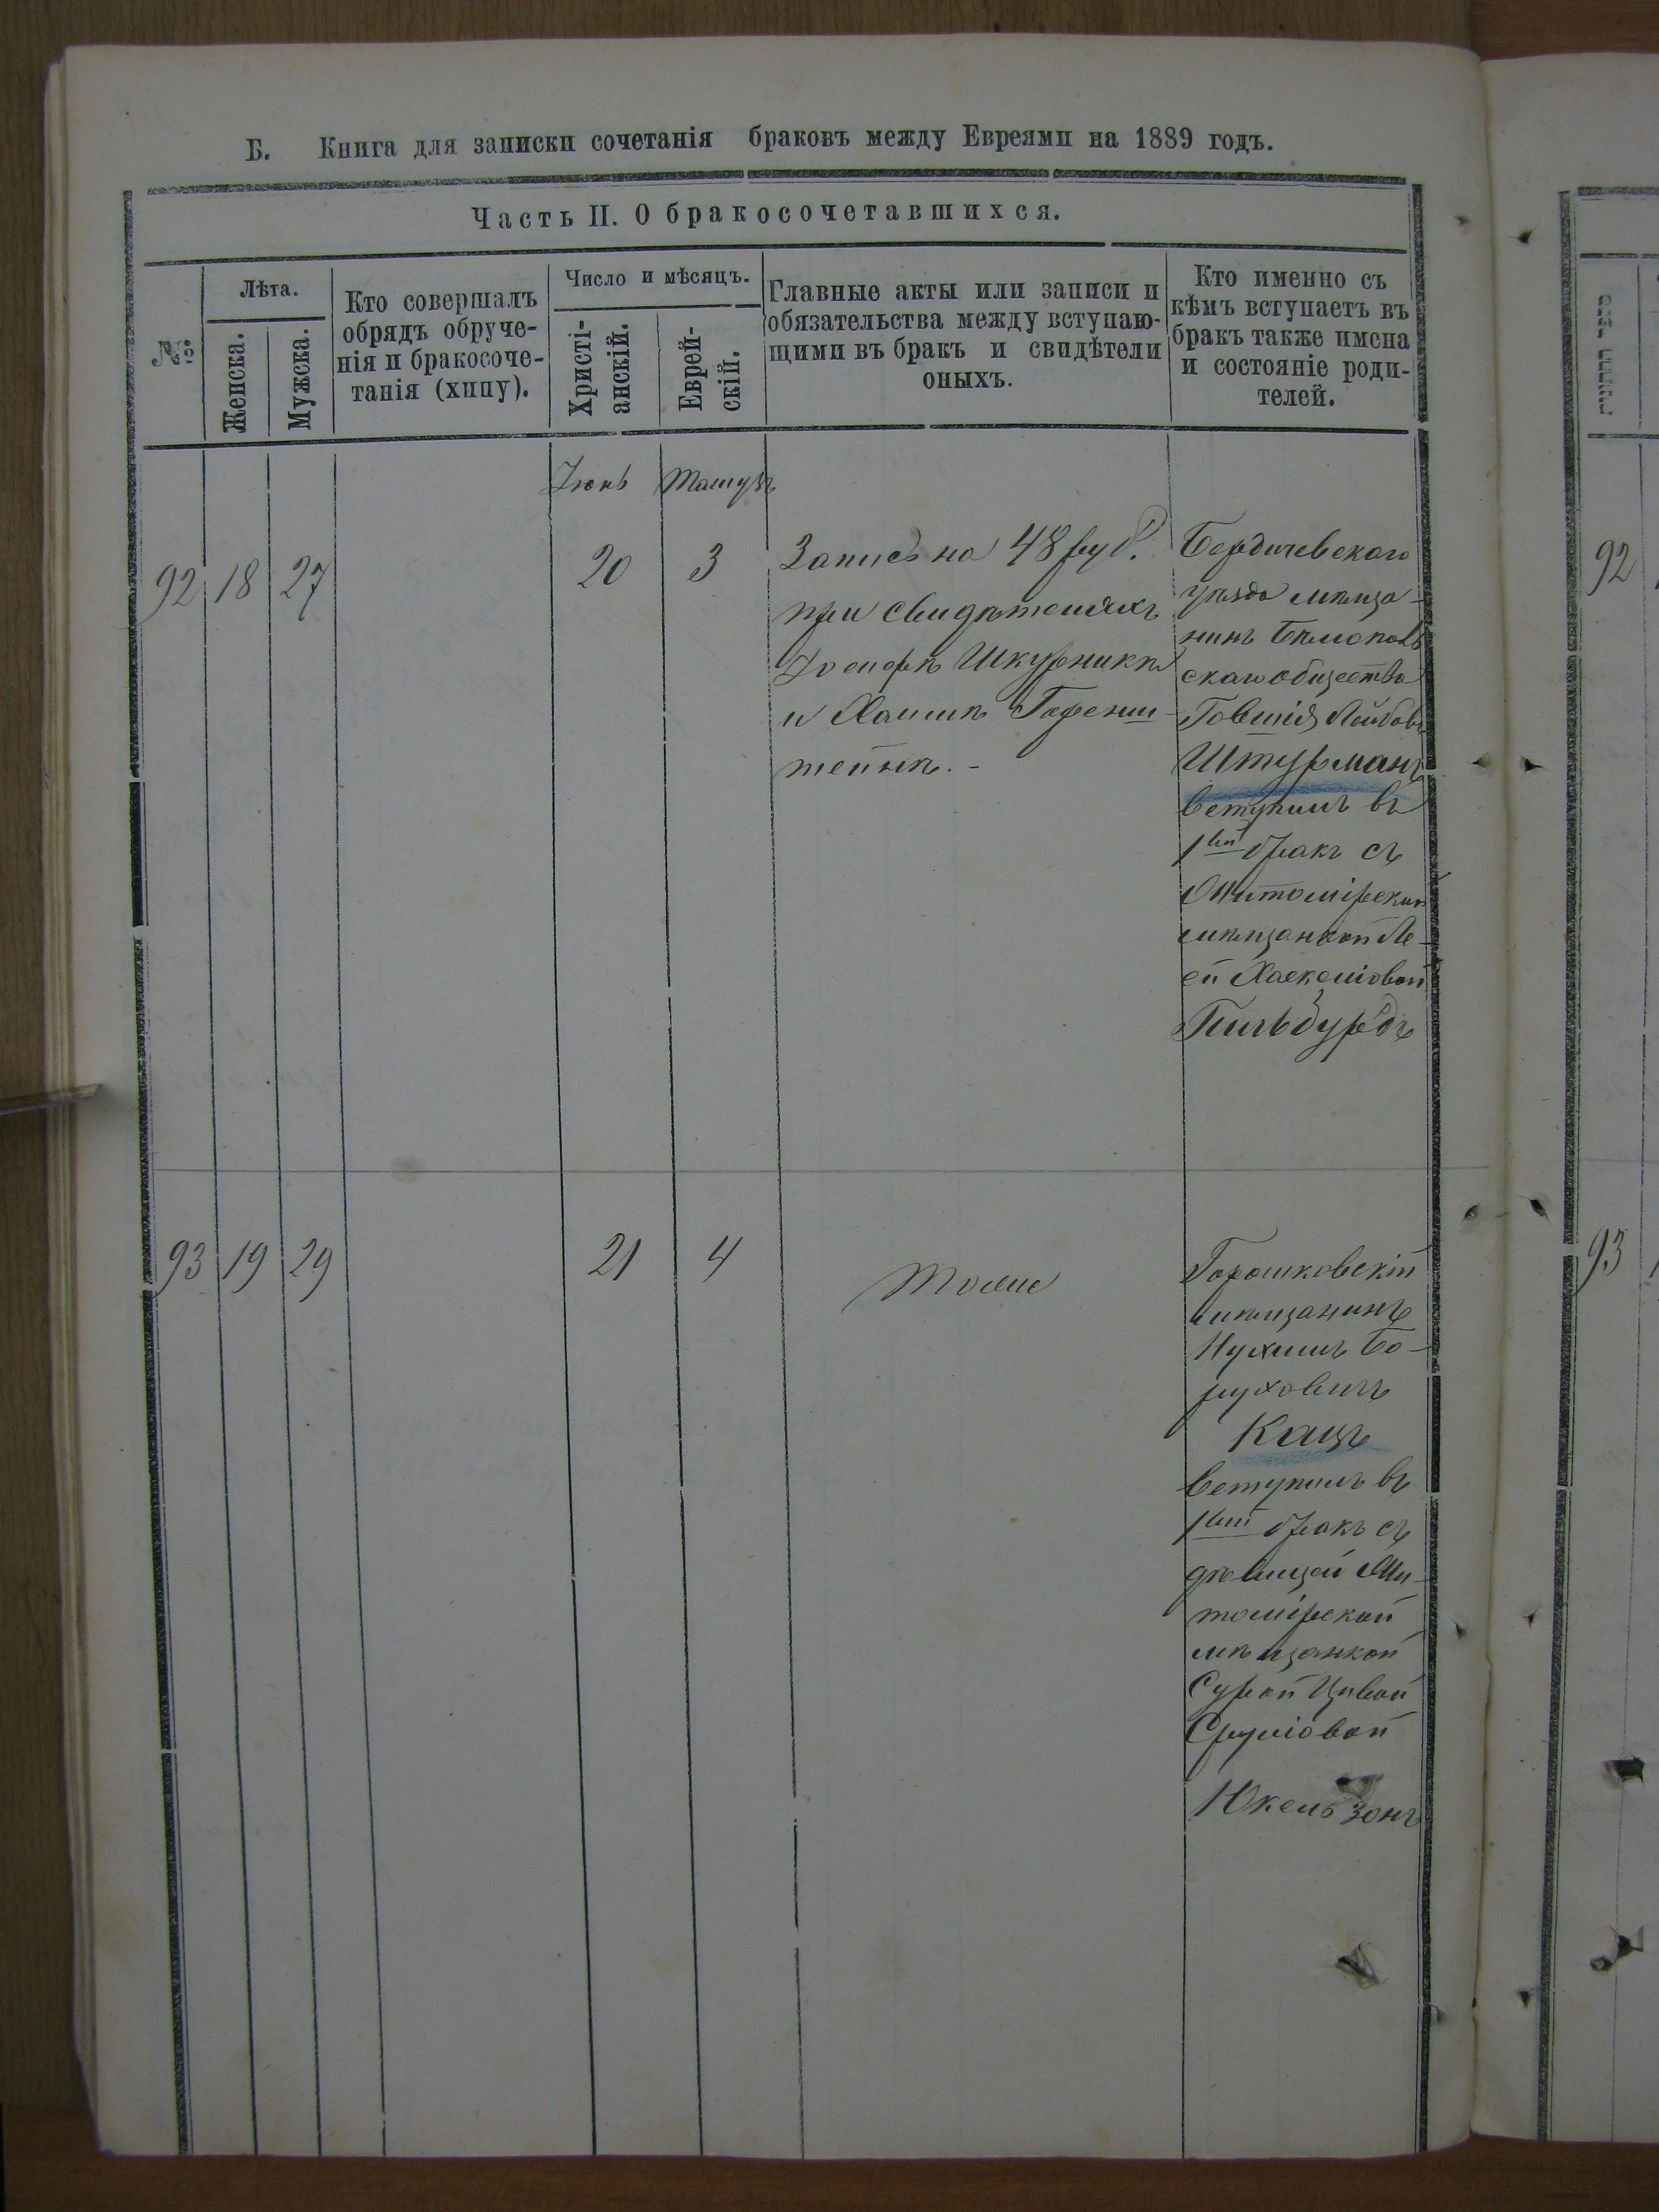 Б. Книга для записки сочетанія браковъ между Евреями на 1889 годъ.
Часть II. О бракосочетавшихся.
№
Лѣта.
Женска.
Мужска.
Кто совершалъ
обрядъ обруче-
нія и бракосоче-
танія (хипу).
Число и мѣсяцъ.
Христі-
анскій.
Еврей-
скій.
Главные акты или записи и
обязательства между вступаю-
щими въ бракъ и свидѣтели
оныхъ.
Кто именно съ
кѣмъ вступаетъ въ
бракъ также имена
и состояніе роди-
телей.
Іюнь
92
18
27
20
3
Запись на 48 руб.
при свидѣтеляхъ
Іосифѣ Шкурникѣ
и Хаимѣ Горенш-
тейнѣ.-
Бердичевскаго
уѣзда мѣща-
нинъ
скаго общества
Говшія Лейбовъ
Штурманъ
вступилъ въ
1вый бракъ съ
Житомірской
мѣщанкой Ле-
ей Хаскеліовой
93
19
29
21
4
Тоже
Горошковскій
мѣщанинъ
Нухимъ Бо-
руховичъ
Кацъ
вступилъ въ
1вый бракъ съ
дѣвицей Жи-
томірской
мѣщанкой
Сурой Цивой
Сруліовой
Юкельзонъ
92
93